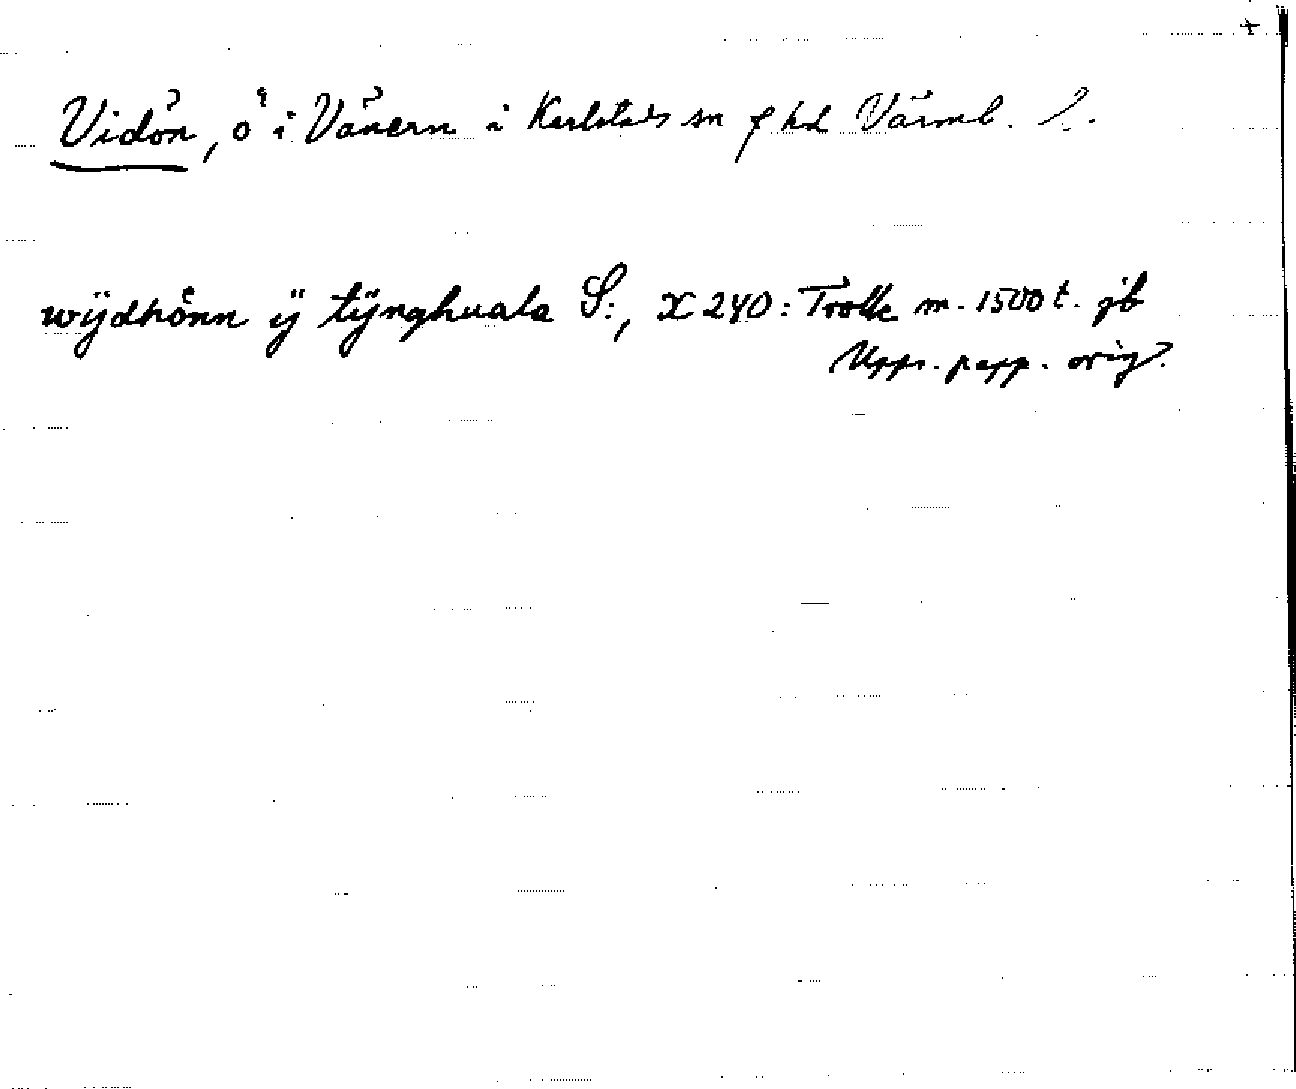 +
Vidön, ö i Vänern i Karlstads sn f hd Värml. l.
wÿdhönn ÿ tÿnghuala S:, X 240: Trolle m. 1500 t. jb
Upps. papp. orig.